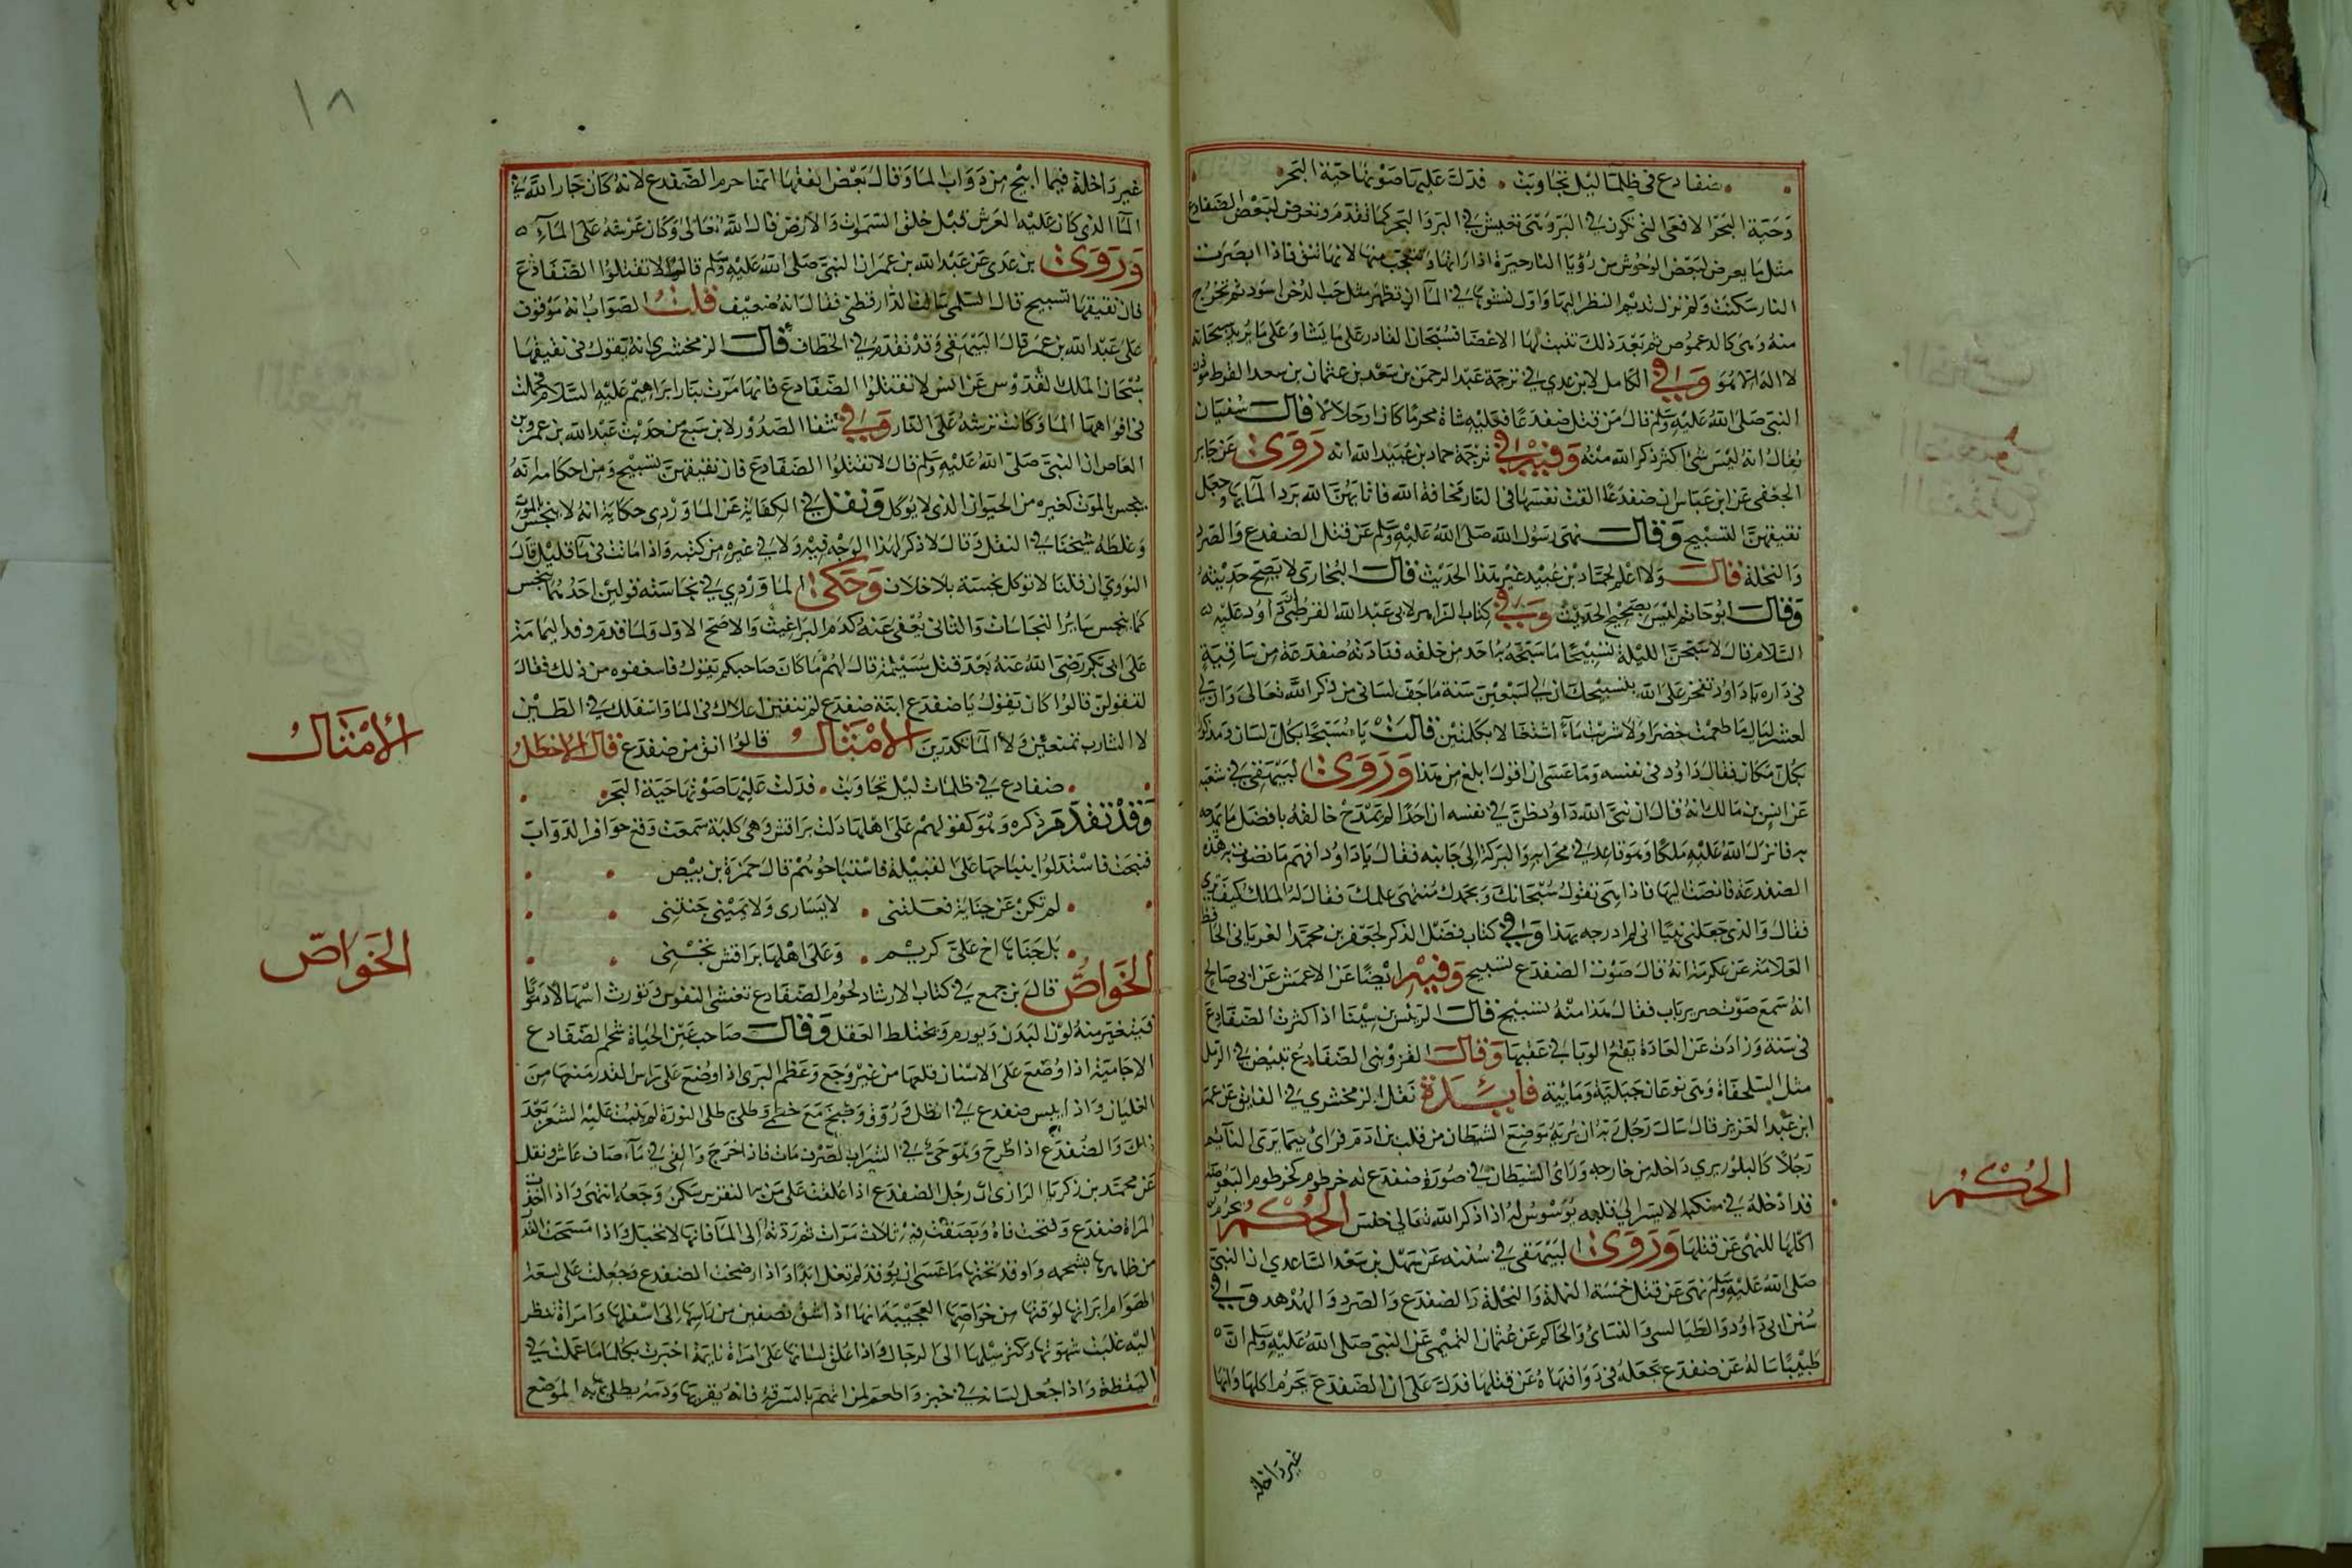 ضفادع في ظلما ليل تجاوبت فدلت عليها صوتها حية البحر
وحية البحر الافعى التي تكون في البر وهي تعيش في البر والبحر كما تقدم وتعرض لبعض الضفادع
مثل ما يعرض لبعض الوحوش من رؤيا النار حيرة اذا راتها وتتعجب منها لانها تنق فاذا ابصرت
النار سكتت ولم تزل تديم النظر اليها واول نشوها في الما ان تظهر مثل حب الدخن اسود ثم تخرج
منه وهي كالدعموص ثم بعد ذلك تنبت لها الاعضا فسبحان القادر على ما يشا وعلى ما يريد سبحانه
لا اله الا هو وفي الكامل لابن عدي في ترجمة عبد الرحمن بن سعد بن عثمان بن سعد القرظ
النبي صلى الله عليه وسلم قال من قتل ضفدعا فعليه شاة محرما كان او حلالا قال سفيان
يقال انه ليس شئ اكثر ذكر الله منه وفيه في ترجمة حماد بن عبيد الله انه روى عن جابر
الجعفي عن ابن عباس ان ضفدعا القت نفسها في النار مخافة الله فاثابهن الله برد الما وجعل
نقيقهن التسبيح وقال نهى رسول الله صلى الله عليه وسلم عن قتل الضفدع والصرد
والنحلة قال ولا اعلم لحماد بن عبيد غير هذا الحديث قال البخاري لا يصح حديثه
وقال ابو حاتم ليس بصحيح الحديث وفي كتاب الزاهر لابي عبد الله القرطبي ان داود عليه
السلام قال لاسبحن الليلة تسبيحا ما سبحه به احد من خلقه فنادته ضفدعة من ساقية
في داره يا داود تفخر على الله بتسبيحك ان لي لسبعين سنة ما جف لساني من ذكر الله تعالى وان لي
لعشر ليال ما طعمت خضرا ولا شربت ماء اشتغالا بكلمتين قالت يا مسبحا بكل لسان ومذكورا
بكل مكان فقال داود في نفسه وما عسى ان اقول ابلغ من هذا وروى البيهقي في شعبه
عن انس بن مالك انه قال ان نبي الله داود ظن في نفسه ان احدا لم يمدح خالقه بافضل مما يمدحه
به فانزل الله عليه ملكا وهو قاعد في محرابه والبركة الى جانبه فقال يا داود افهم ما تصوت به هذه
الضفدعة فانصت اليها فاذا هي تقول سبحانك وبحمدك منتهى علمك فقال له الملك كيف ترى
فقال والذي جعلني نبيا اني لم امدحه بهذا وفي كتاب فضل الذكر لجعفر بن محمد الفريابي الحافظ
العلامة عن عكرمة انه قال صوت الضفدع تسبيح وفيه ايضا عن الاعمش عن ابي صالح
انه سمع صوت صرير باب فقال هذا منه تسبيح قال الرئيس بن سينا اذا كثرت الضفادع
في سنة وزادت عن العادة يقع الوبا في عقبها وقال القزويني الضفادع تبيض في الرمل
مثل السلحفاة وهي نوعان جبلية ومائية فايدة نقل الزمخشري في الفايق عن عمر
ابن عبد العزيز قال سال رجل ربه ان يريه موضع الشيطان من قلب بن ادم فراى فيما يرى النائم
رجلا كالبلور يري داخله من خارجه وراى الشيطان في صورة ضفدع له خرطوم كخرطوم البعوضة
قد ادخله في منكبه الايسر الى قلبه يوسوس له اذا ذكر الله تعالى خنس الحكم يحرم
اكلها للنهي عن قتلها وروى البيهقي في سننه عن سهل بن سعد الساعدي ان النبي
صلى الله عليه وسلم نهى عن قتل خمسة النملة والنحلة والضفدع والصرد والهدهد وفي
سنن ابي داود والطيالسي والنسائ والحاكم عن عثمان التيمي عن النبي صلى الله عليه وسلم ان
طبيبا ساله عن ضفدع يجعله في دواء فنهاه عن قتلها فدل على ان الضفدع يحرم اكلها وانها
غير داخلة
الحكم
١٨
غير داخلة فيما ابيح من دواب الما وقال بعض الفقها انما حرم الضفدع لانه كان جار الله في
الما الذي كان عليه العرش قبل خلق السموات والارض قال الله تعالى وكان عرشه على الماء
وروى بن عدى عن عبد الله بن عمر ان النبي صلى الله عليه وسلم قال لا تقتلوا الضفادع
فان نقيقها تسبيح قال السلمي سالت الدارقطني فقال انه ضعيف قلت الصواب انه موقوف
على عبد الله بن عمر قال البيهقي وقد تقدم في الخطاف قال الزمخشري انه تقول في نقيقها
سبحان الملك القدوس عن انس لا تقتلوا الضفادع فانها مرت بنار ابراهيم عليه السلام فحملت
في افواهها الما وكانت ترشه على النار وفي شفا الصدور لابن سبع من حديث عبد الله بن عمرو بن
العاص ان النبي صلى الله عليه وسلم قال لا تقتلوا الضفادع فان نقيقهن تسبيح ومن احكامها انه
ينجس بالموت كغيره من الحيوان الذي لا يوكل ونقل في الكفاية عن الماوردى حكاية انه لا ينجس بالموت
وغلطه شيخنا في النقل وقال لا ذكر لهذا الوجه فيه ولا في غيره من كتبه واذا ماتت في ما قليل قال
النووي ان قلنا لا توكل نجسته بلا خلاف وحكى الماوردي في نجاسته قولين احدهما ينجس
كما ينجس ساير النجاسات والثاني يعفى عنه كدم البراغيث والاصح الاول ولما قدم وفد اليمامة
على ابى بكر رضى الله عنه بعد قتل مسيلمة قال لهم ما كان صاحبكم يقول فاستعفوه من ذلك فقال
لتقولن قالوا كان يقول يا ضفدع ابنة ضفدع لم تنقين اعلاك في الما واسفلك في الطين
لا الشارب تمنعين ولا الما تكدرين الامثال قالوا انق من ضفدع قال الاخطل
ضفادع في ظلمات ليل تجاوبت فدلت عليها صوتها حية البحر
وقد تقدم ذكره وهو كقولهم على اهلها دلت براقش وهى كلبة سمعت وقع حوافر الدواب
فنبحت فاستدلوا بنباحها على القبيلة فاستباحوهم قال حمزة بن بيض
لم تكن عن جناية فعلتني لا يسارى ولا يميني جنتني
بل جناها اخ على كريم وعلى اهلها براقش تجني
الخواص قال بن جمع في كتاب الارشاد لحوم الضفادع تغشى النفوس وتورث اسهالا دمويا
فيتغير منه لون البدن ويورم ويختلط العقل وقال صاحب عين الحياة شحم الضفادع
الاجامية اذا وضع على الاسنان قلعها من غير وجع وعظم البرى اذا وضع على راس القدر منعها من
الغليان واذا يبس ضفدع في الظل ودق وطبخ مع خطمي وطلي به بعد طلى النورة لم ينبت عليه الشعر بعد
ذلك والضفدع اذا طرح وهو حي في الشراب الصرف مات فاذا اخرج والقى في ماء صاف عاش ونقل
عن محمد بن زكريا الرازى ان رجل الضفدع اذا علقت على من به النقرس سكن وجعه انتهى واذا اخذت
المراة ضفدع وفتحت فاه وبصقت فيه ثلاث مرات ثم ردته الى الما فانها لا تحبل واذا مسحت القدر
من ظاهرها بشحمه واوقد تحتها ما عسى ان يوقد لم تغل ابدا واذا رضخت الضفدع وجعلت على لسعة
الهوام ابراتها لوقتها من خواصها العجيبة انها اذا شق نصفين من راسها الى اسفلها وامراة تنظر
اليه غلبت شهوتها وكثر ميلها الى الرجال واذا علق لسانها على امراة نايمة اخبرت بكل ما عملت في
اليقظة واذا جعل لسانه في خبز واطعم لمن اتهم بالسرقة فانه يقر بها ودمه يطلى به الموضع
الامثال
الخواص